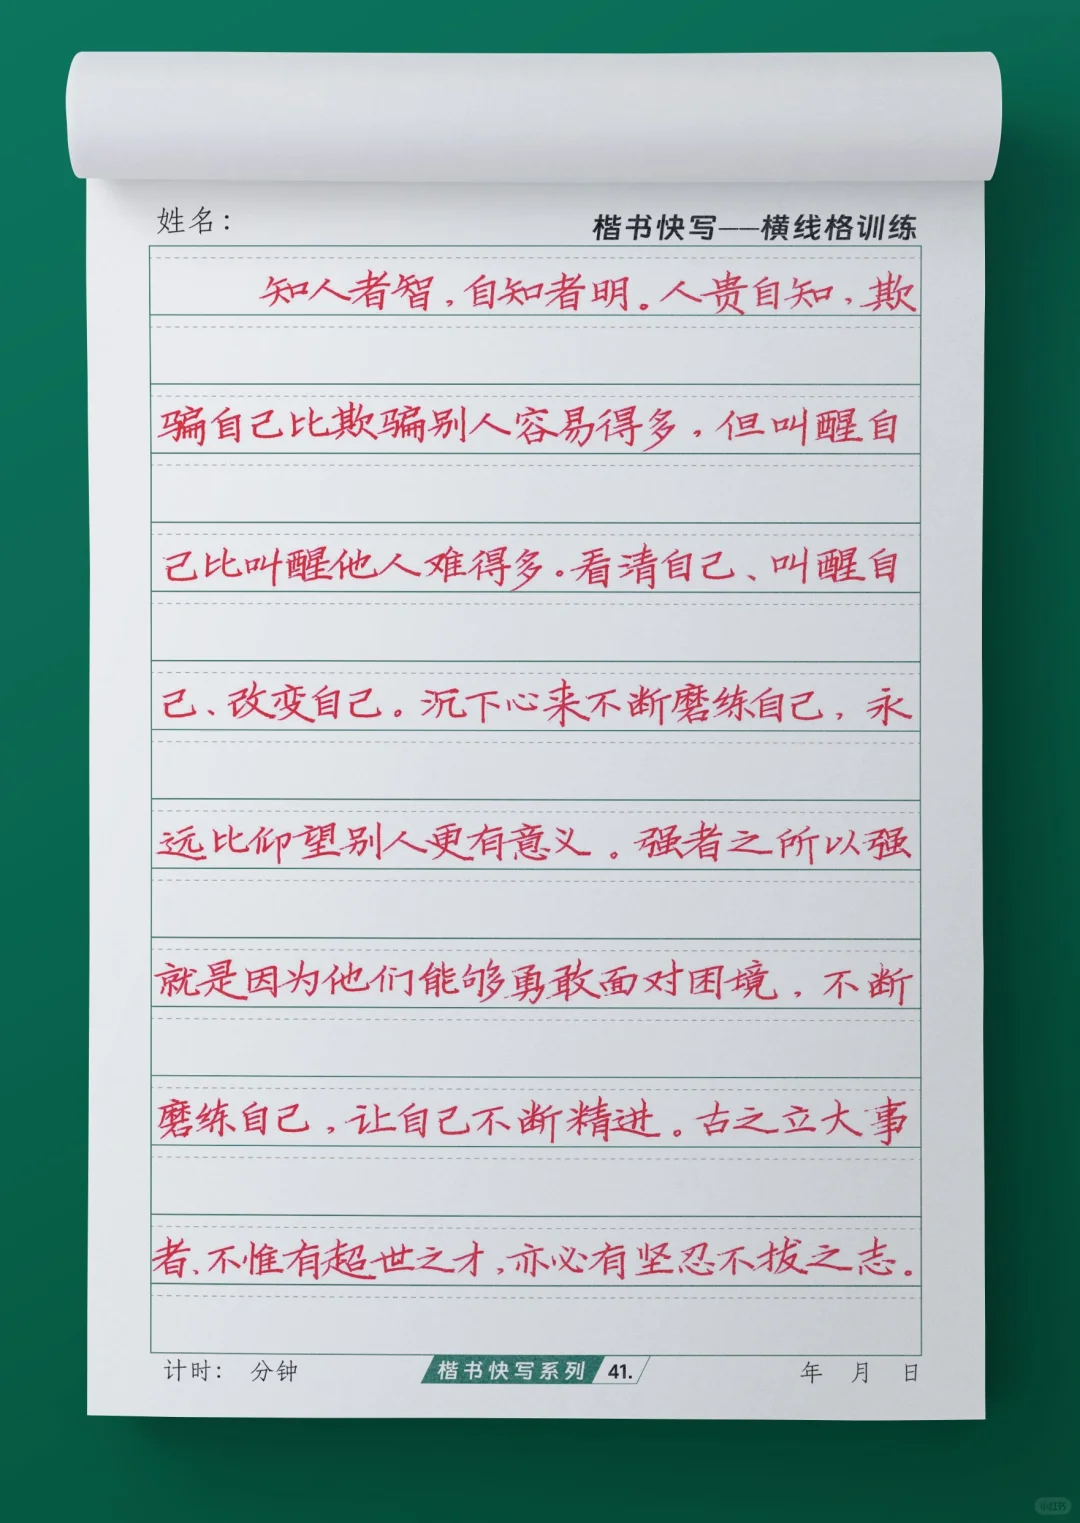 姓名：
楷书快写——横线格训练
知人者智，自知者明。人贵自知，欺
骗自己比欺骗别人容易得多，但叫醒自
己比叫醒他人难得多。看清自己、叫醒自
己、改变自己。沉下心来不断磨练自己，永
远比仰望别人更有意义。强者之所以强
就是因为他们能够勇敢面对困境，不断
磨练自己，让自己不断精进。古之立大事
者、不惟有超世之才，亦必有坚忍不拔之志。
计时： 分钟
楷书快写系列 41.
年 月 日
小红书